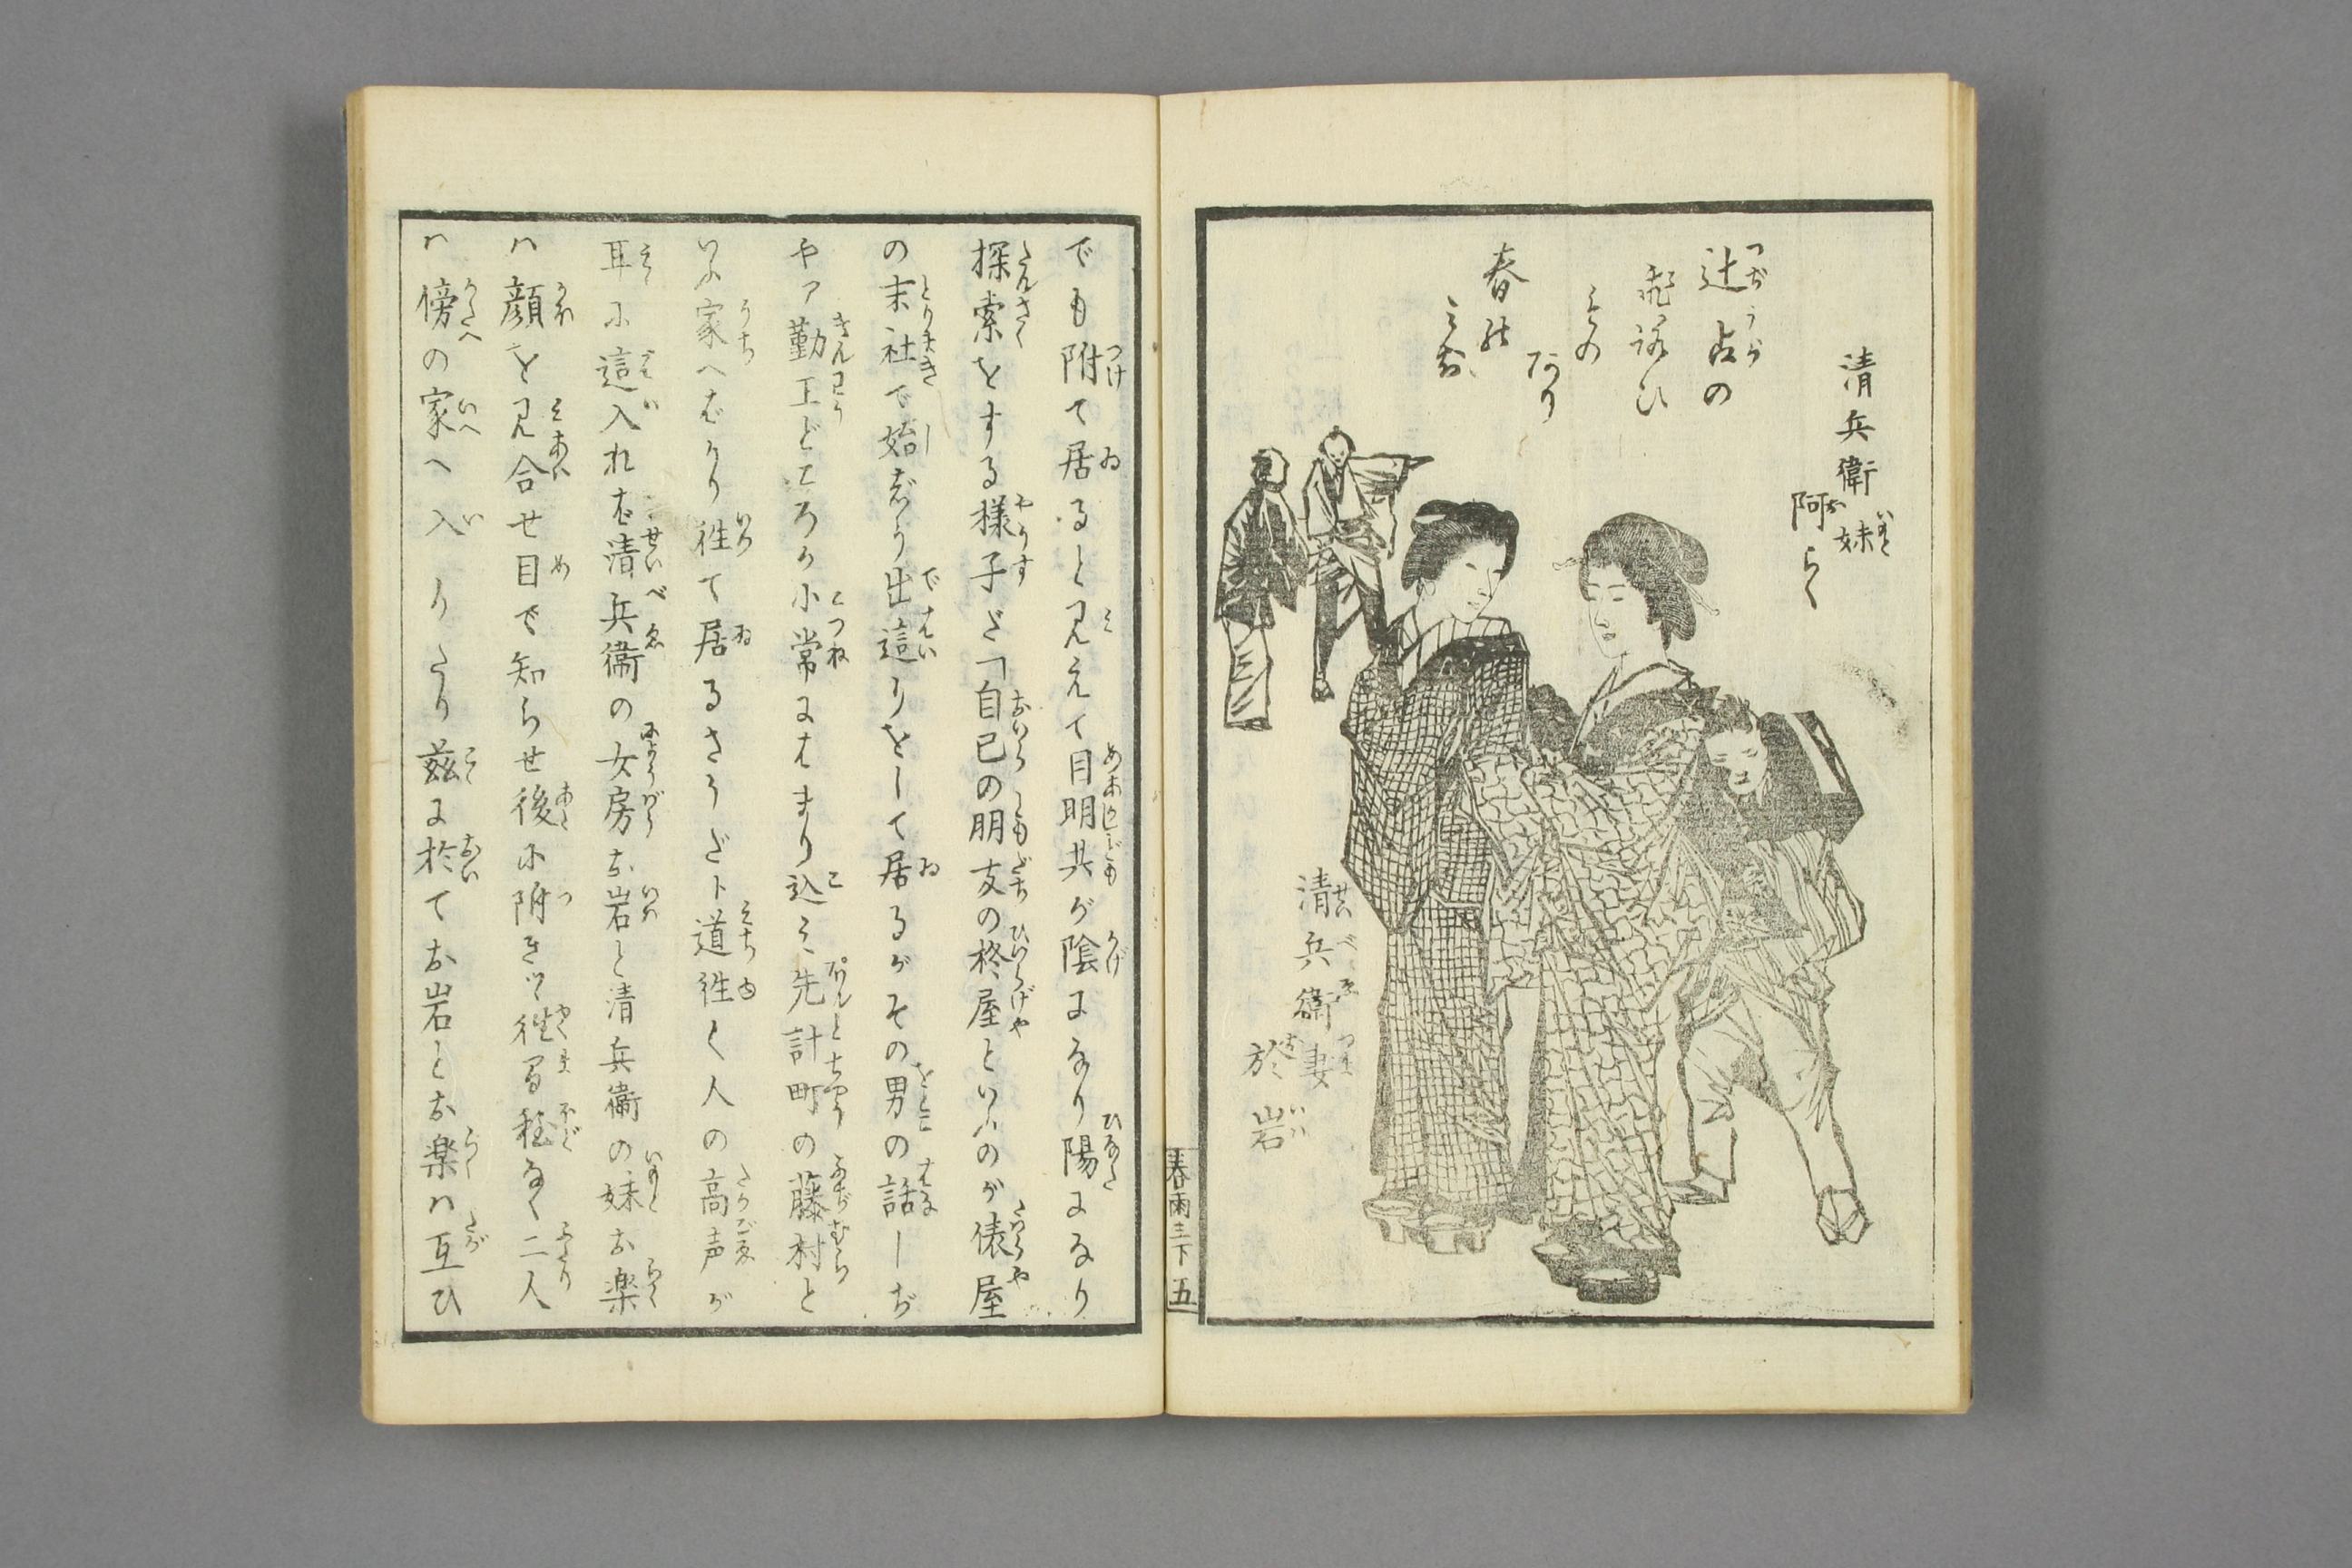 清兵衛妹
阿らく
辻占の
ひ
その
あり
春の
清兵衛妻
於岩
春雨三下 五
でも附て居ると見えて目明共が陰になり陽になり
探索をする様子だ「自己の朋友の柊屋といふのが俵屋
の末社で始ぢう出這りをして居るがその男の話しぢ
やア勤王どころか小常にはまり込で先計町の藤村と
いふ家へばかり往て居るさうだト道往く人の高声が
耳に這入れば清兵衛の女房お岩と清兵衛の妹お楽
ハ顔を見合せ目で知らせ後に附きツヽ往間程なく二人
ハ傍の家へ入りたり茲に於てお岩とお楽ハ互ひ